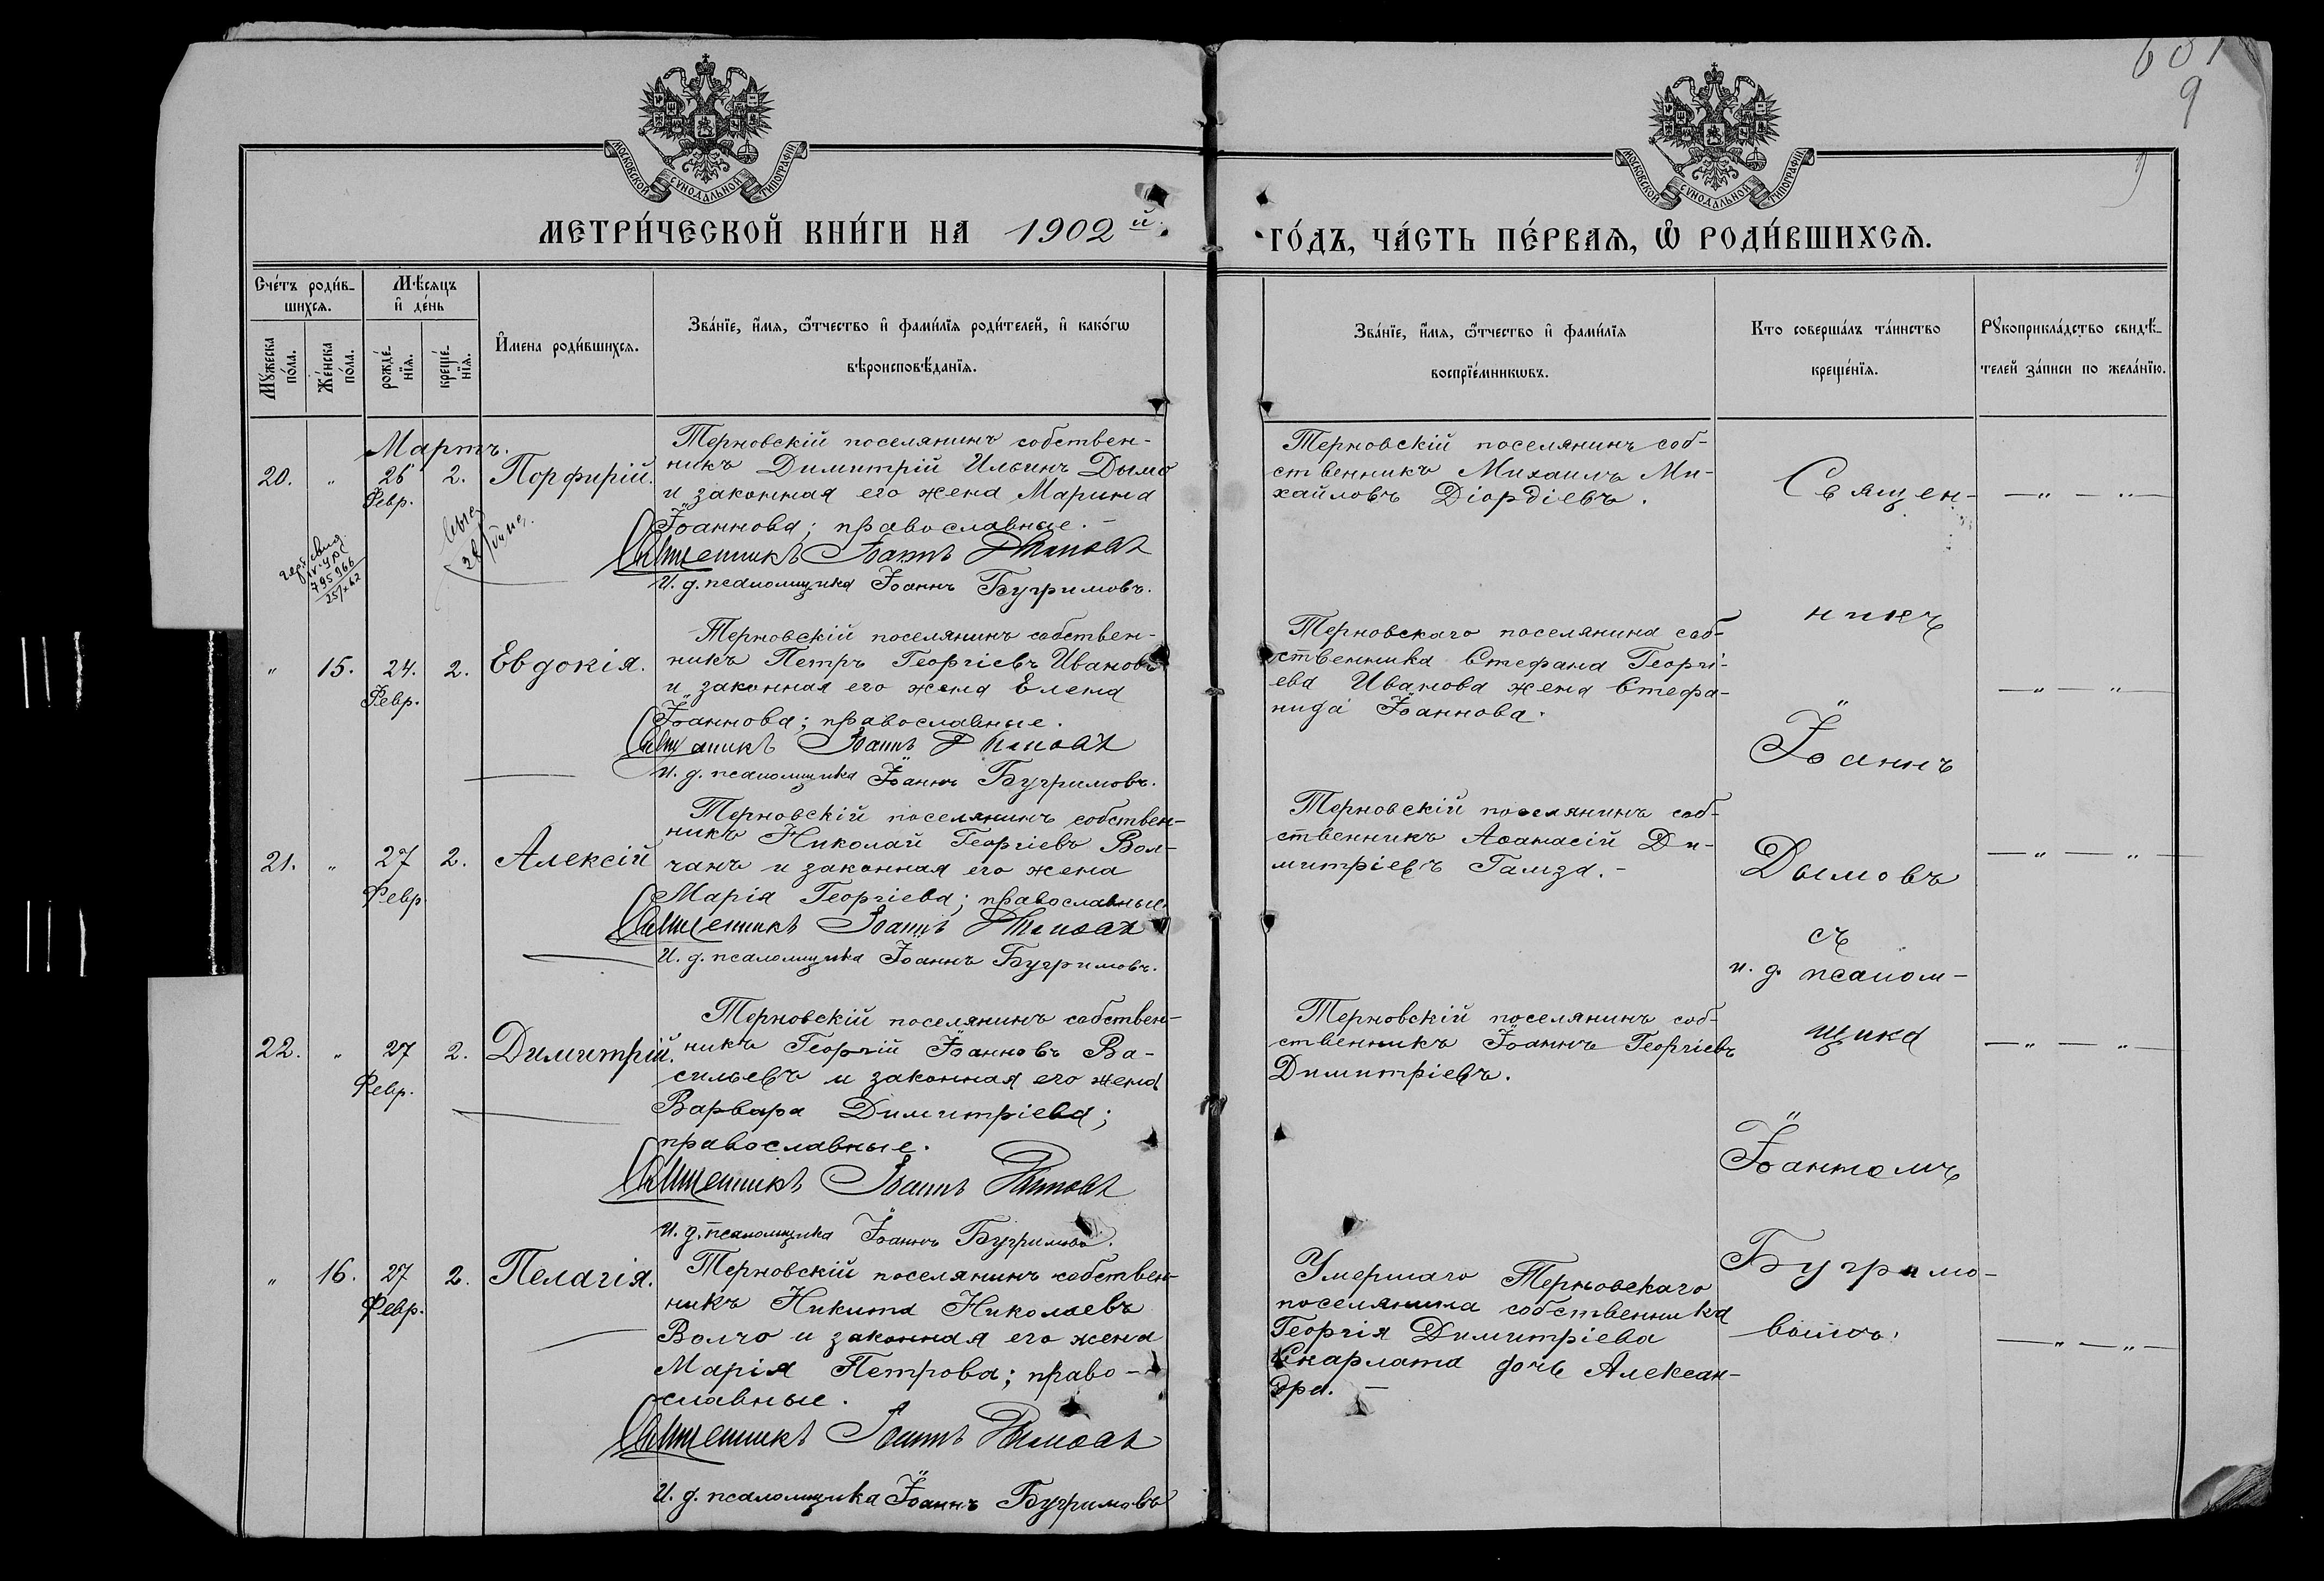 631
9
МОСКОВСКОЙ СѴНОДАЛЬНОЙ ТИПОГРАФІИ
МОСКОВСКОЙ СѴНОДАЛЬНОЙ ТИПОГРАФІИ
МЕТРИ́ЧЕСКОЙ КНИ́ГИ НА 1902й
ГО́ДЪ, ЧА́СТЬ ПЕ́РВАѦ, Ѽ РОДИ́ВШИХСѦ.
Сче́тъ роди́в-
шихсѧ.
Мꙋжеска по́ла.
Же́нска по́ла.
Мѣ́сѧцъ
и҆ де́нь
рожде́-
нїѧ.
креще́-
нїѧ.
И҆мена роди́вшихсѧ.
Зва́нїе, и҆́мѧ, ѿтчество и҆ фами́лїѧ роди́телей, и҆ како́гѡ
вѣроисповѣ́данїѧ.
Зва́нїе, и҆́мѧ, ѿтчество и҆ фами́лїѧ
воспрїе́мникѡвъ.
Кто соверша́лъ та́инство
креще́нїѧ.
Рꙋкоприкла́дство свидѣ́-
телей за́писи по жела́нїю.
Мартъ.
20. " 26 Февр. 2. Порфирій.
Терновскій поселянинъ собствен-
никъ Димитрій Ильинъ Дымо
и законная его жена Марина
Іоаннова; православные. -
Священникъ Іоаннъ Дымовъ
И. д. псаломщика Іоаннъ Бугримовъ.
Терновскій поселянинъ соб-
ственникъ Михаилъ Ми-
хайловъ Діордіевъ.
— " — " —
795966
" 15. 24. Февр. 2. Евдокія.
Терновскій поселянинъ собствен-
никъ Петръ Георгіевъ Ивановъ
и законная его жена Елена
Іоаннова; православные.
Священникъ Іоаннъ Дымовъ
И. д. псаломщика Іоаннъ Бугримовъ.
Терновскаго поселянина соб-
ственника Стефана Георгі-
ева Иванова жена Стефа-
нида Іоаннова.
— " — " —
21. " 27 Февр 2. Алексій
Терновскій поселянинъ собствен-
никъ Николай Георгіевъ Вол-
чанъ и законная его жена
Марія Георгіева; православные.
Священникъ Іоаннъ Дымовъ
И. д. псаломщика Іоаннъ Бугримовъ.
Терновскій поселянинъ соб-
ственникъ Аѳанасій Ди-
митріевъ Гамза. -
— " — " —
22. " 27 Февр. 2. Димитрій.
Терновскій поселянинъ собствен-
никъ Георгій Іоанновъ Ва-
сильевъ и законная его жена
Варвара Димитріева;
православные.
Священникъ Іоаннъ Дымовъ
И. д. псаломщика Іоаннъ Бугримовъ.
Терновскій поселянинъ соб-
ственникъ Іоаннъ Георгіевъ
Димитріевъ.
— " — " —
" 16. 27 Февр. 2. Пелагія.
Терновскій поселянинъ собствен-
никъ Никита Николаевъ
Волчо и законная его жена
Марія Петрова; право-
славные.
Священникъ Іоаннъ Дымовъ
И. д. псаломщика Іоаннъ Бугримовъ
Умершаго Терновскаго
поселянина собственника
Георгія Димитріева
Скарлата дочь Алексан-
дра. —
— " — " —
Священ-
никъ
Іоаннъ
Дымовъ
съ
и. д. псалом-
щика
Іоанномъ
Бугримо-
вымъ.